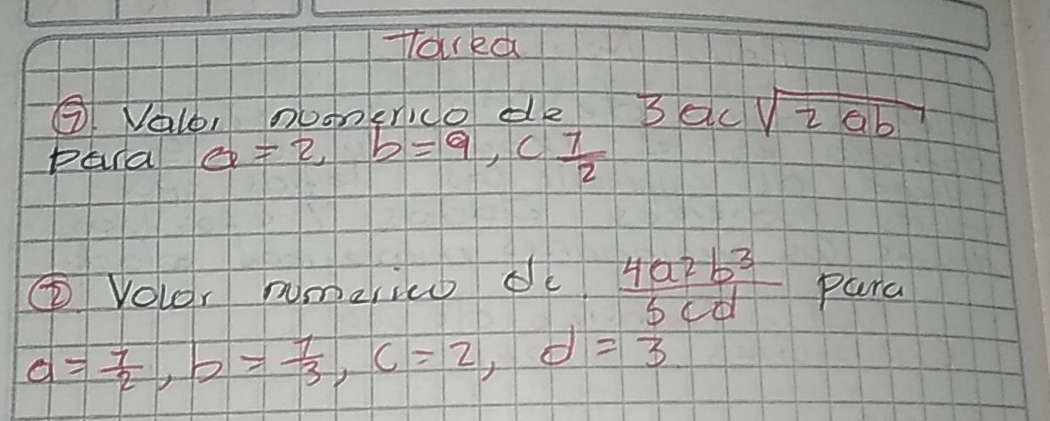 Tarea
① Valor numerico de 3ac√2ab
para a = 2, b = 9, c 1/2
② Valor numerico de 4a2b³/5cd para
a = 1/2, b = 1/3, c = 2, d = 3